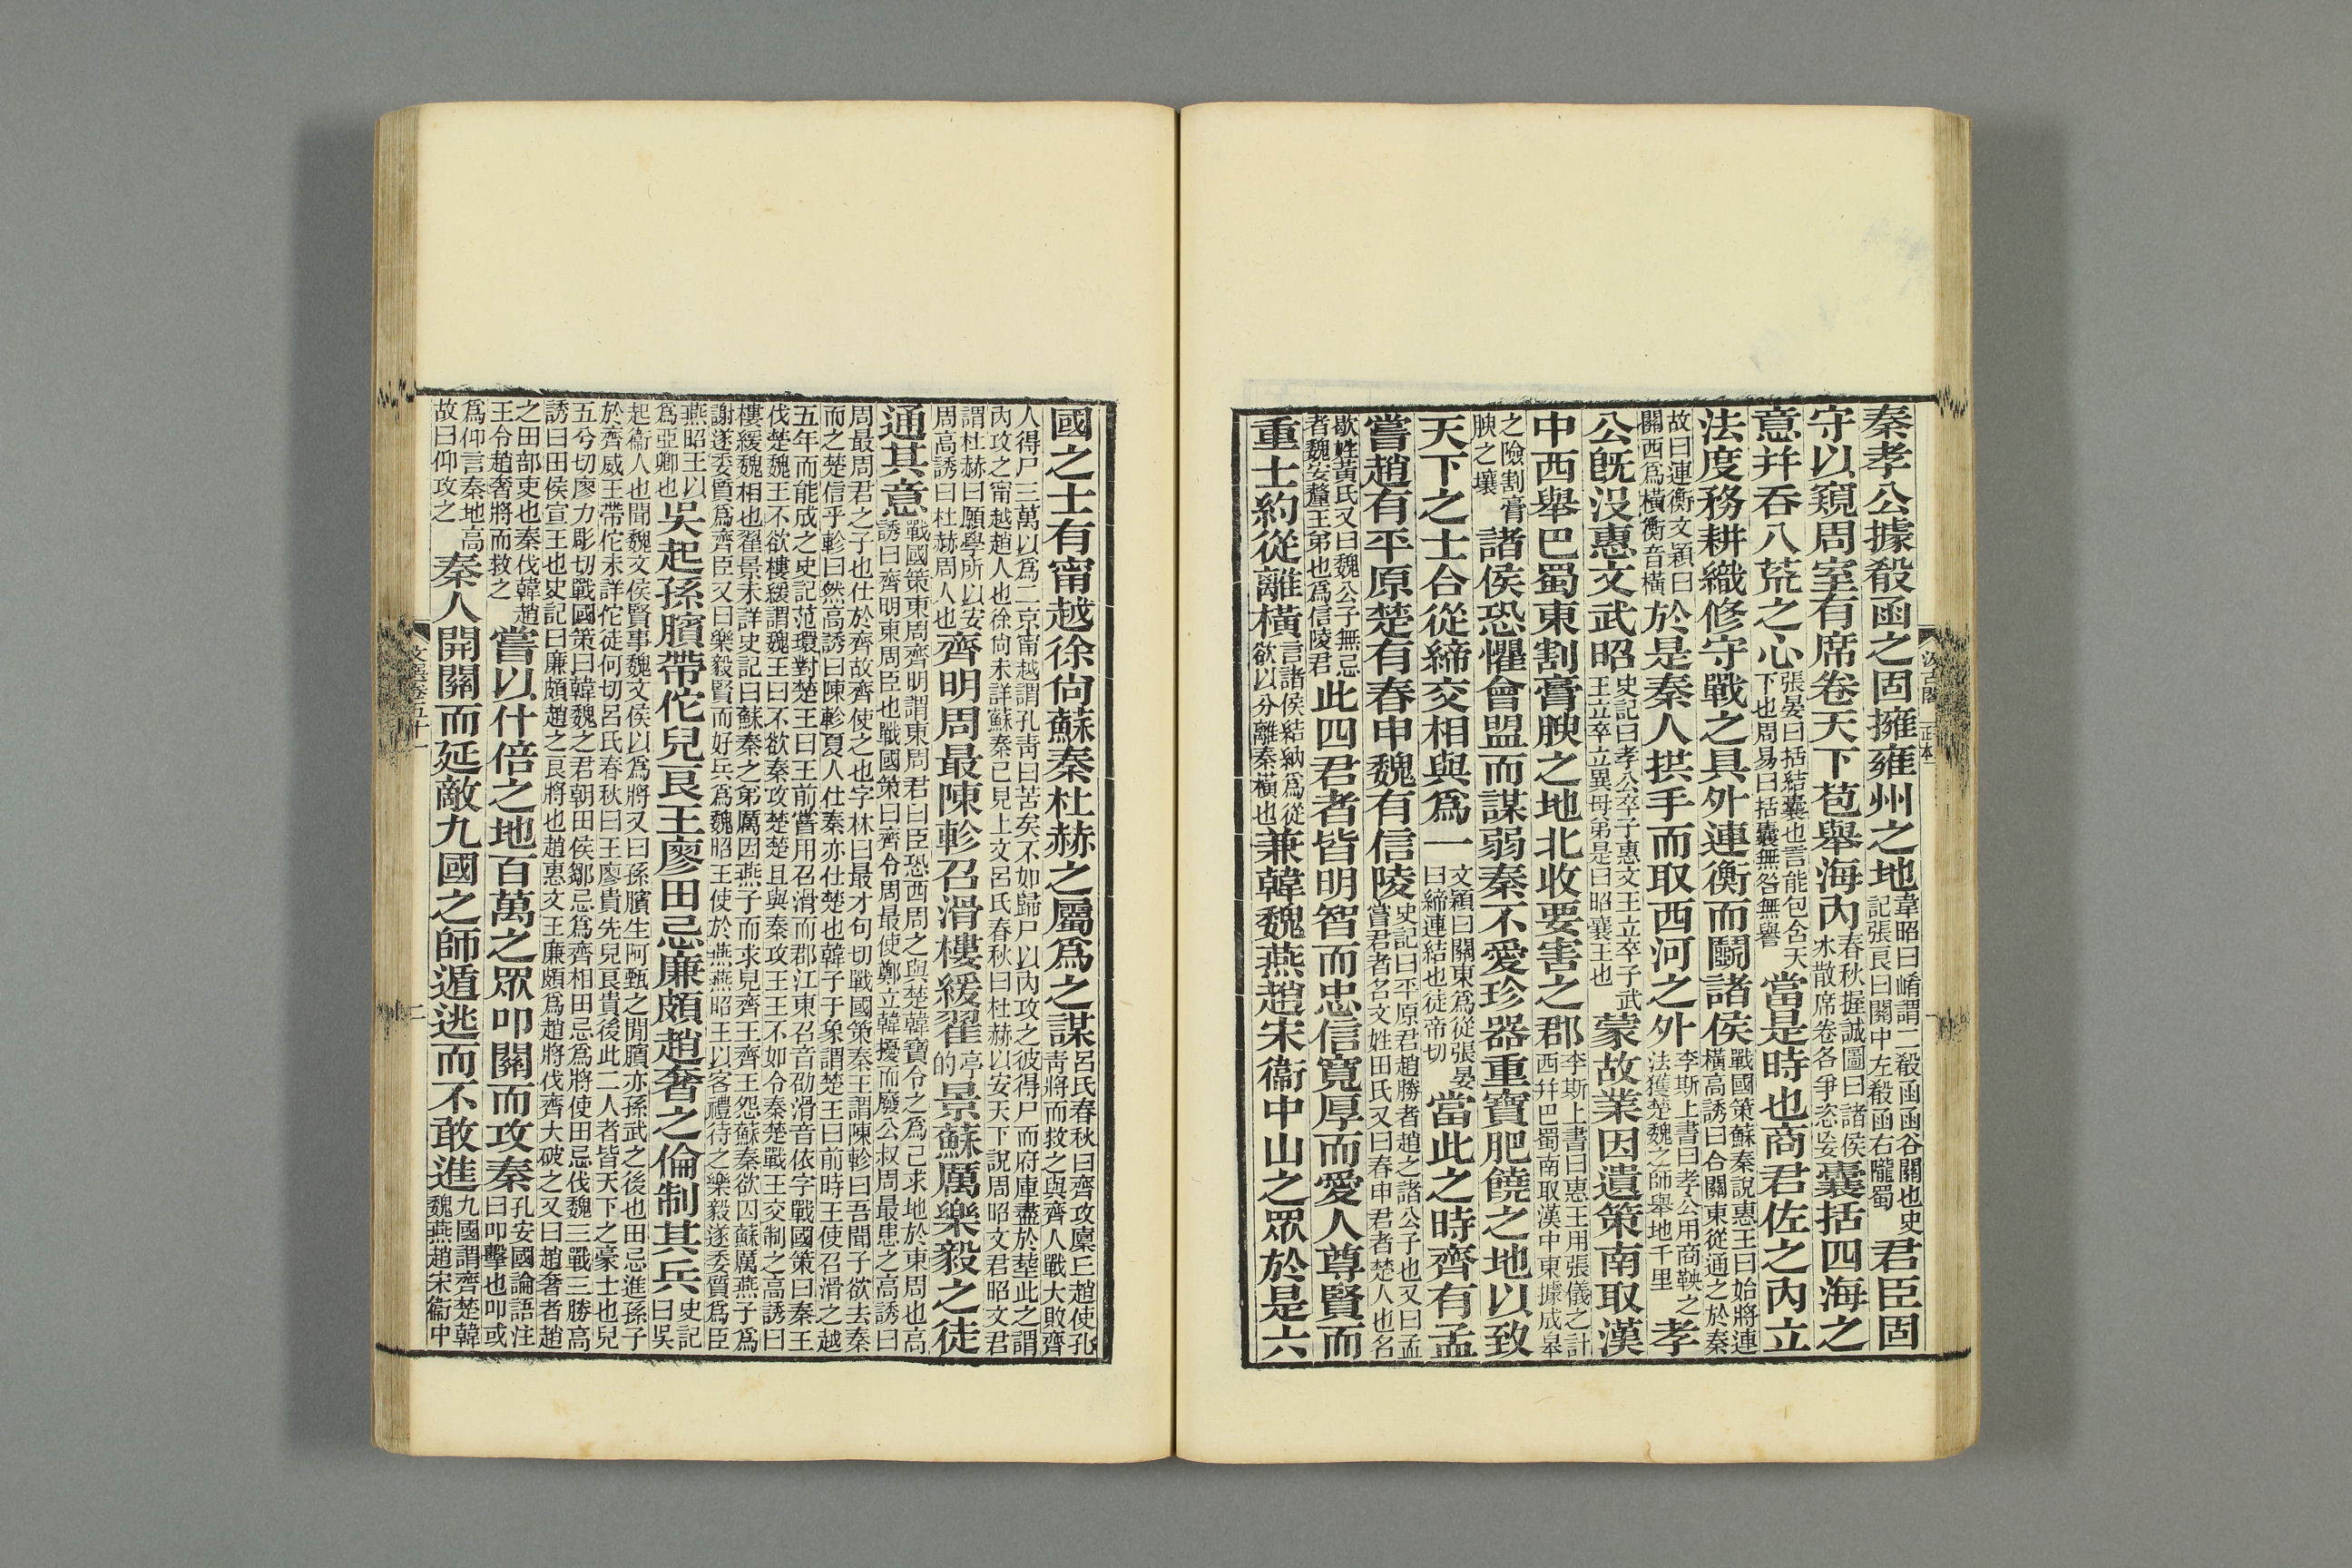 汲古閣
正本
秦孝公據殽函之固擁雍州之地韋昭曰崤謂二殽函函谷關也史記張良曰關中左殽函右隴蜀君臣固
守以窺周室有席卷天下苞舉海内春秋握誠圖曰諸侯冰散席卷各爭恣妄囊括四海之
意幷吞八荒之心張晏曰括結囊也言能包含天下也周易曰括囊無咎無譽當是時也商君佐之内立
法度務耕織修守戰之具外連衡而鬭諸侯戰國策蘇秦說惠王曰始將連橫高誘曰合關東從通之於秦
故曰連衡文穎曰關西爲橫衡音橫於是秦人拱手而取西河之外李斯上書曰孝公用商鞅之法獲楚魏之師舉地千里孝
公旣没惠文武昭史記曰孝公卒子惠文王立卒子武王立卒立異母弟是曰昭襄王也蒙故業因遺策南取漢
中西舉巴蜀東割膏腴之地北收要害之郡李斯上書曰惠王用張儀之計西幷巴蜀南取漢中東據成皋
之險割膏腴之壤諸侯恐懼會盟而謀弱秦不愛珍器重寶肥饒之地以致
天下之士合從締交相與爲一文穎曰關東爲從張晏曰締連結也徒帝切當此之時齊有孟
嘗趙有平原楚有春申魏有信陵史記曰平原君趙勝者趙之諸公子也又曰孟嘗君者名文姓田氏又曰春申君者楚人也名
歇姓黃氏又曰魏公子無忌者魏安釐王弟也爲信陵君此四君者皆明智而忠信寬厚而愛人尊賢而
重士約從離橫言諸侯結納爲從欲以分離秦橫也兼韓魏燕趙宋衞中山之眾於是六
國之士有甯越徐尙蘇秦杜赫之屬爲之謀呂氏春秋曰齊攻廩丘趙使孔青將而救之與齊人戰大敗齊
人得尸三萬以爲二京甯越謂孔青曰苦矣不如歸尸以内攻之彼得尸而府庫盡於塟此之謂内攻之甯越趙人也徐尙未詳蘇秦已見上文呂氏春秋曰杜赫以安天下說周昭文君昭文君
謂杜赫曰願學所以安周高誘曰杜赫周人也齊明周最陳軫召滑樓緩翟亭的景蘇厲樂毅之徒
通其意戰國策東周齊明謂東周君曰臣恐西周之與楚韓寶令之爲己求地於東周也高誘曰齊明東周臣也戰國策曰齊令周最使鄭立韓擾而廢公叔周最患之高誘曰
周最周君之子也仕於齊故齊使之也字林曰最才句切戰國策秦王謂陳軫曰吾聞子欲去秦而之楚信乎軫曰然高誘曰陳軫夏人仕秦亦仕楚也韓子于象謂楚王曰前時王使召滑之越
五年而能成之史記范環對楚王曰王前嘗用召滑而郡江東召音劭滑音依字戰國策曰秦王伐楚魏王不欲樓緩謂魏王曰不欲秦攻楚楚且與秦攻王王不如令秦楚戰王交制之高誘曰
樓緩魏相也翟景未詳史記曰蘇秦之弟厲因燕子而求見齊王齊王怨蘇秦欲囚蘇厲燕子爲謝遂委質爲齊臣又曰樂毅賢而好兵爲魏昭王使於燕燕昭王以客禮待之樂毅遂委質爲臣
燕昭王以爲亞卿也吳起孫臏帶佗兒良王廖田忌廉頗趙奢之倫制其兵史記曰吳
起衞人也聞魏文侯賢事魏文侯以爲將又曰孫臏生阿甄之閒臏亦孫武之後也田忌進孫子於齊威王帶佗未詳佗徒何切呂氏春秋曰王廖貴先兒良貴後此二人者皆天下之豪士也兒
五兮切廖力彫切戰國策曰韓魏之君朝田侯鄒忌爲齊相田忌爲將使田忌伐魏三戰三勝高誘曰田侯宣王也史記曰廉頗趙之良將也趙惠文王廉頗爲趙將伐齊大破之又曰趙奢者趙
之田部吏也秦伐韓趙王令趙奢將而救之嘗以什倍之地百萬之眾叩關而攻秦孔安國論語注曰叩擊也叩或
爲仰言秦地高故曰仰攻之秦人開關而延敵九國之師遁逃而不敢進九國謂齊楚韓魏燕趙宋衞中
文選卷五十一
二